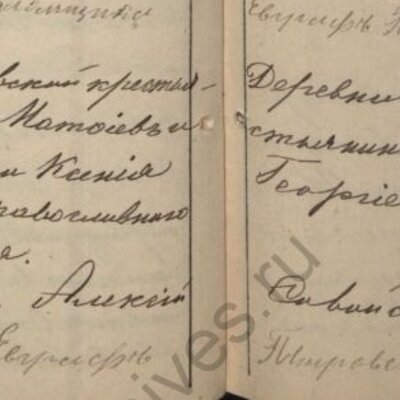 вский крестья-
Матѳіевъ и
и Ксенія
православнаго
я.
Алексій
Евграфъ
Евграфъ
Деревни
естьянинъ
Георгіе
Савой
Петровс
ives.ru